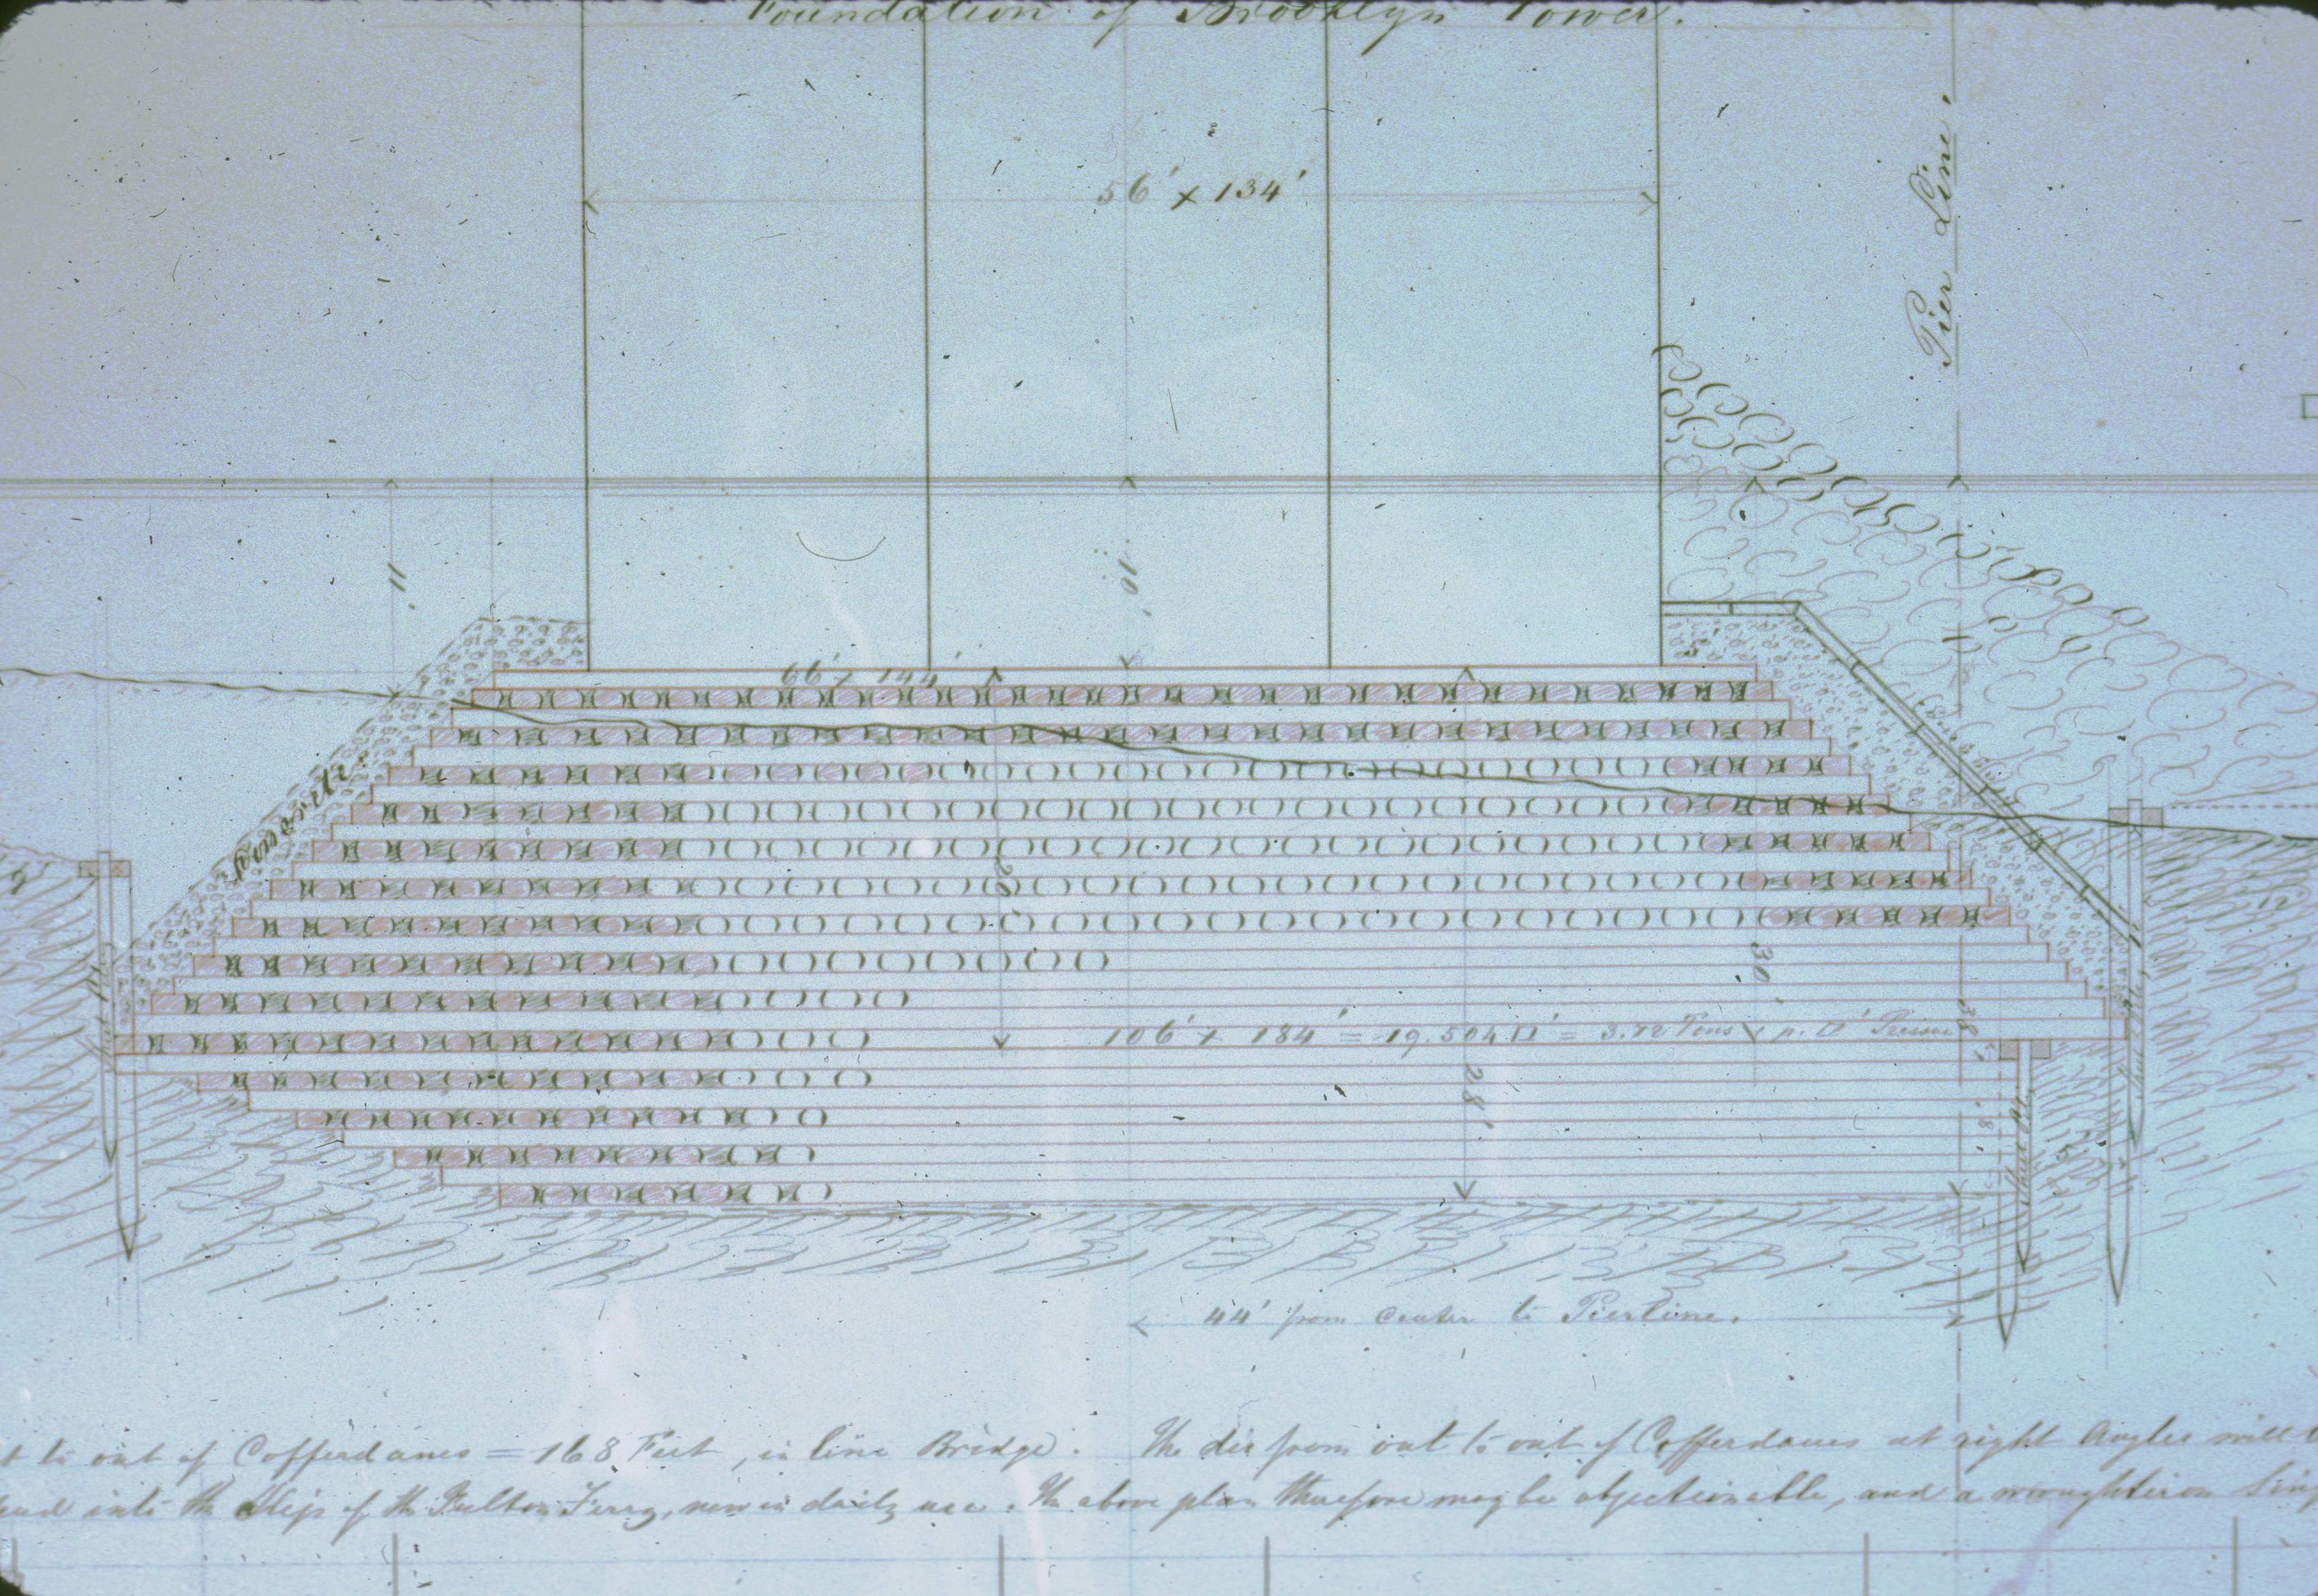 Foundation of Brooklyn Tower.
Pier Line.
56' x 134'
11'
10'
66' x 144'
20'
30'
38'
106' x 184' = 19.504 □' = 3.72 Tons p. □' Pressure
28'
8'
44' from center to Pierline.
t to out of Cofferdams = 168 Feet, in line Bridge. The dis from out to out of Cofferdams at right Angles will
into the Slip of the Fulton Ferry, now in daily use. The above plan therefore may be objectionable, and a wroughtiron